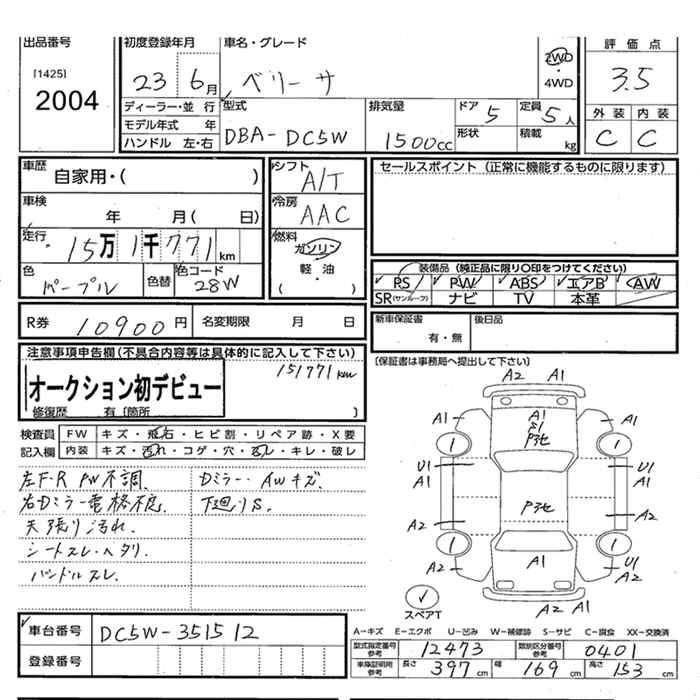 出品番号 初度登録年月 車名・グレード 評価点
[1425] 2004 23 6月 ベリーサ 2WD ・ 4WD 3.5
ディーラー・並 行 型式 排気量 ドア 5 定員 5人 外装 内装
モデル年式 年 DBA-DC5W 1500cc 形状 積載 kg C C
ハンドル 左・右
車歴 自家用・( ) シフト A/T セールスポイント (正常に機能するものに限ります)
車検 年 月( 日) 冷房 AAC
走行 15万1千771km 燃料 ガソリン ・ 軽・油 ( )
色 パープル 色替 色コード 28W
装備品 (純正品に限り〇印をつけてください)
PS PW ABS エアB AW
SR(サンルーフ) ナビ TV 本革
R券 10900円 名変期限 月 日 新車保証書 有・無 後日品
注意事項申告欄(不具合内容等は具体的に記入して下さい) [保証書は事務局へ提出して下さい]
151771km
オークション初デビュー
修復歴 有〔箇所 〕
検査員 FW キズ・飛石・ヒビ割・リペア跡・X要
記入欄 内装 キズ・汚れ・コゲ・穴・スレ・キレ・破レ
左F・R PW不調. Dミラー・AWキズ.
右Dミラー電格不良. 下廻りS.
天張り汚れ.
シートスレ・ヘタリ.
ハンドルスレ.
A2 A1
A1 A1 S1 Pﾀ他 A1
1 1
U1 A1 U1 A1
A2 Pﾀ他 A2
1 1
A2 A1 U1 A2
スペアT A2 A2 A1
車台番号 DC5W-351512
登録番号
A-キズ E-エクボ U-凹み W-補修跡 S-サビ C-腐食 XX-交換済
型式指定番号 参考 12473 類別区分番号 参考 0401
車庫証明用 参考 長さ 397cm 幅 169cm 高さ 153cm